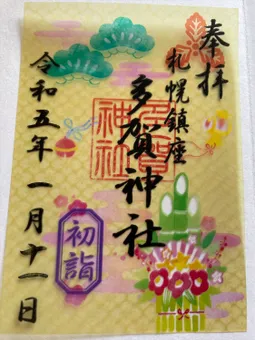 奉拝
札幌鎮座
多賀神社
多賀
神社
令和五年一月十一日
初詣